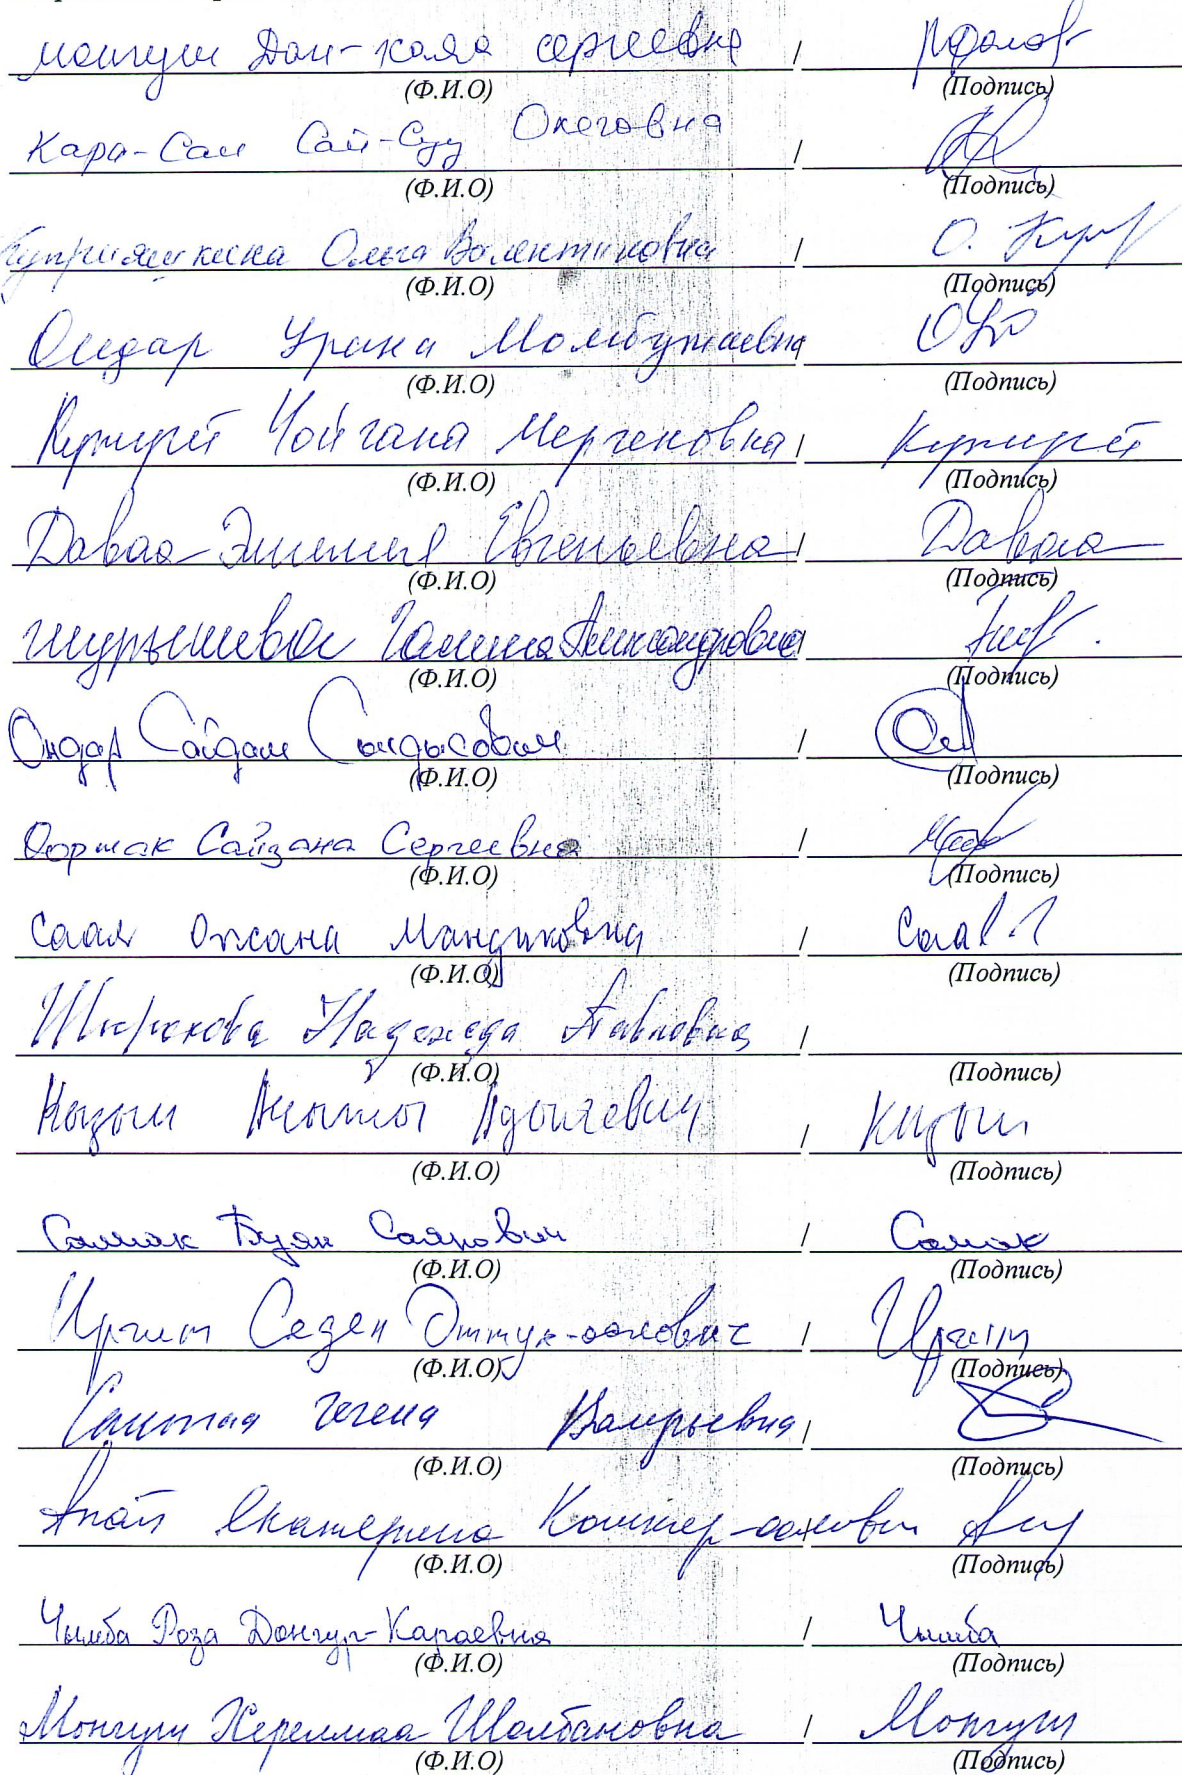 Монгуш Дан-кала Сергеевна /
(Ф.И.О) (Подпись)
Кара-Сал Сай-Суу Олеговна /
(Ф.И.О) (Подпись)
Куприяшкина Ольга Валентиновна / О. Купр
(Ф.И.О) (Подпись)
Ондар Урана Момбужаевна /
(Ф.И.О) (Подпись)
Кужугет Чойгана Мергеновна / Кужугет
(Ф.И.О) (Подпись)
Даваа Эмилия Евгеньевна / Даваа
(Ф.И.О) (Подпись)
Шурышева Галина Александровна
(Ф.И.О) (Подпись)
Ондар Сайдам Сындысович /
(Ф.И.О) (Подпись)
Ооржак Сайзана Сергеевна /
(Ф.И.О) (Подпись)
Саая Оксана Мандыковна /
(Ф.И.О) (Подпись)
Ширикова Надежда Павловна /
(Ф.И.О) (Подпись)
Кызыл Адыяевич / Кызыл
(Ф.И.О) (Подпись)
Самак Буян Саянович / Самак
(Ф.И.О) (Подпись)
Иргит Седен Оттук-оолович / Иргит
(Ф.И.О) (Подпись)
Чечена Валерьевна /
(Ф.И.О) (Подпись)
Апай Екатерина
(Ф.И.О) (Подпись)
Чымба Роза Донгур-Караевна / Чымба
(Ф.И.О) (Подпись)
Монгуш Херелмаа Шолбановна / Монгуш
(Ф.И.О) (Подпись)